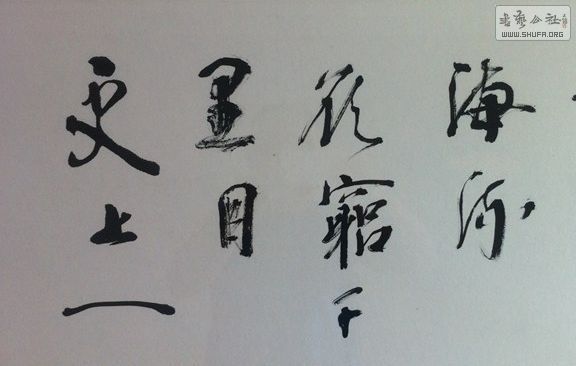 海流
欲窮千
里目
更上一
書藝公社
WWW.SHUFA.ORG